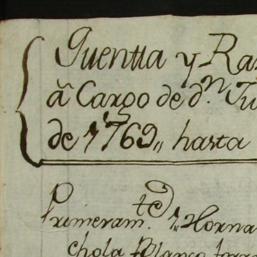 Quentta y Ra
â Cargo de dn. Ju
de 1769,, hasta
Primeramte. 1,, Horna
chola Blanco